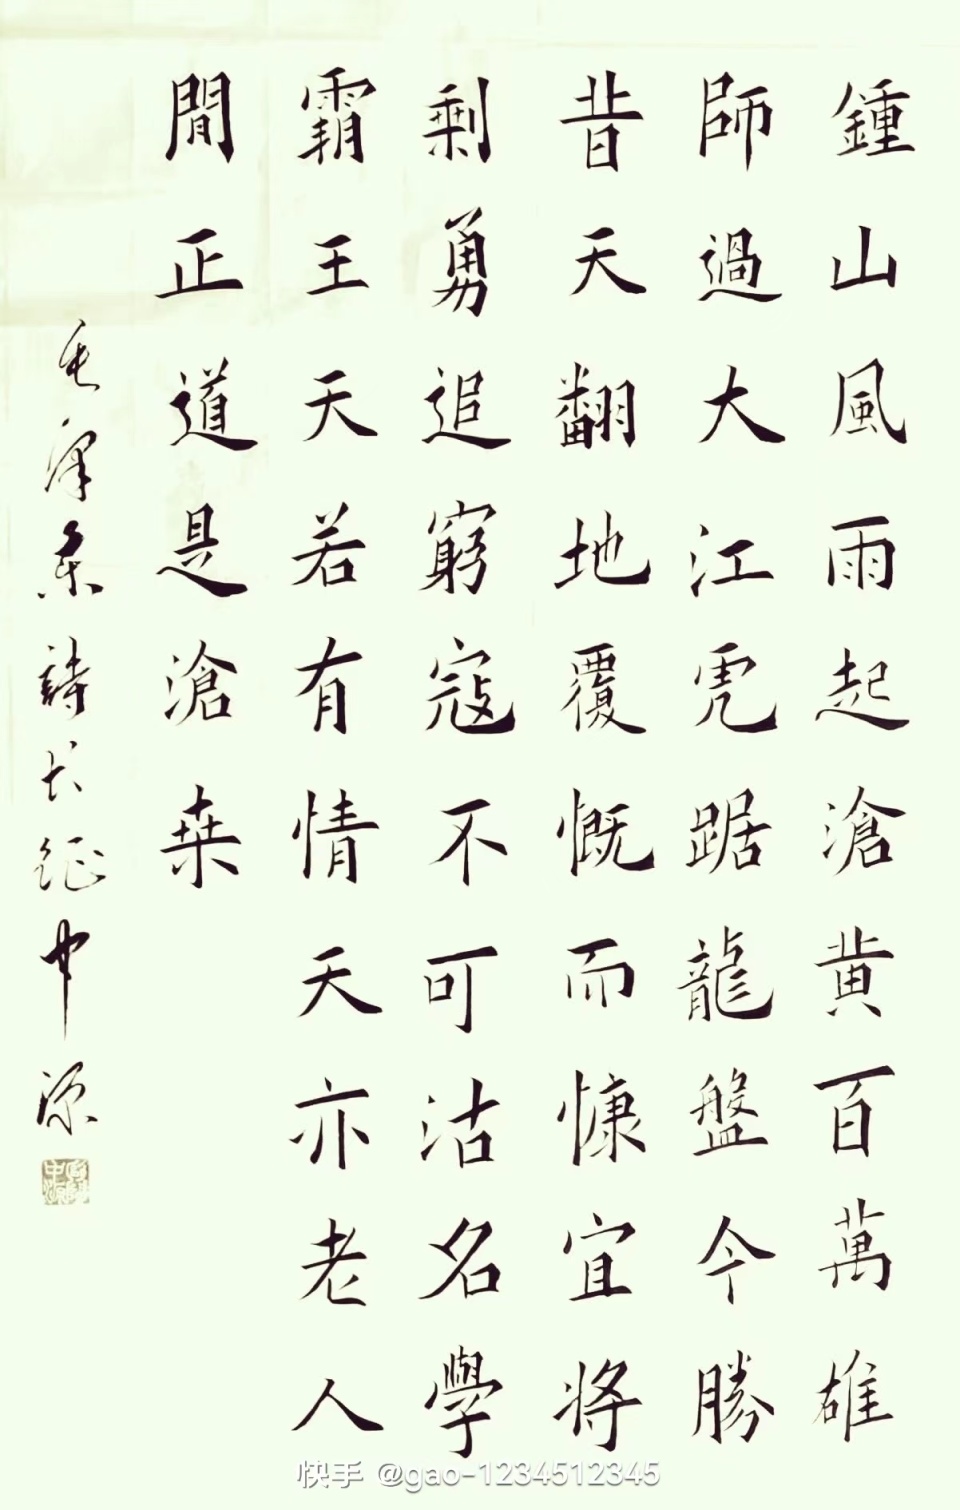 鍾山風雨起滄黄百萬雄
師過大江虎踞龍盤今勝
昔天翻地覆慨而慷宜将
剩勇追窮寇不可沽名學
霸王天若有情天亦老人
間正道是滄桒
毛澤東詩长征中源
快手 @gao-1234512345